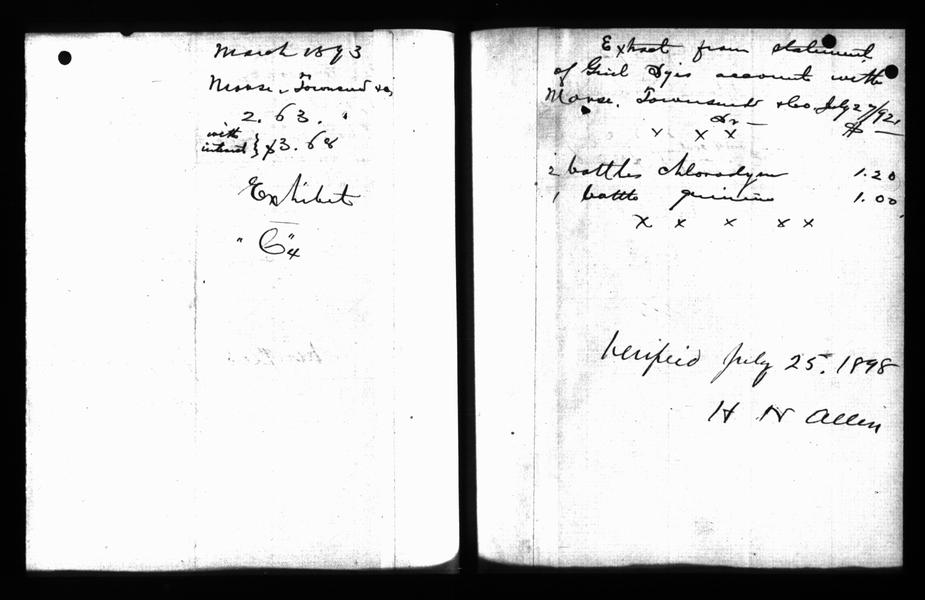 March 1893
Morse, Townsend & Co,
2. 63. "
with
interest } $3. 68
Exhibit
" C4 "
Extract from statement
of account with
Morse, Townsend & Co. July 27/92.
Dr — $ —
x x x
2 bottles chlorodyne 1.20
1 bottle quinine 1.00
x x x x x
Verified July 25. 1898
H N Allen